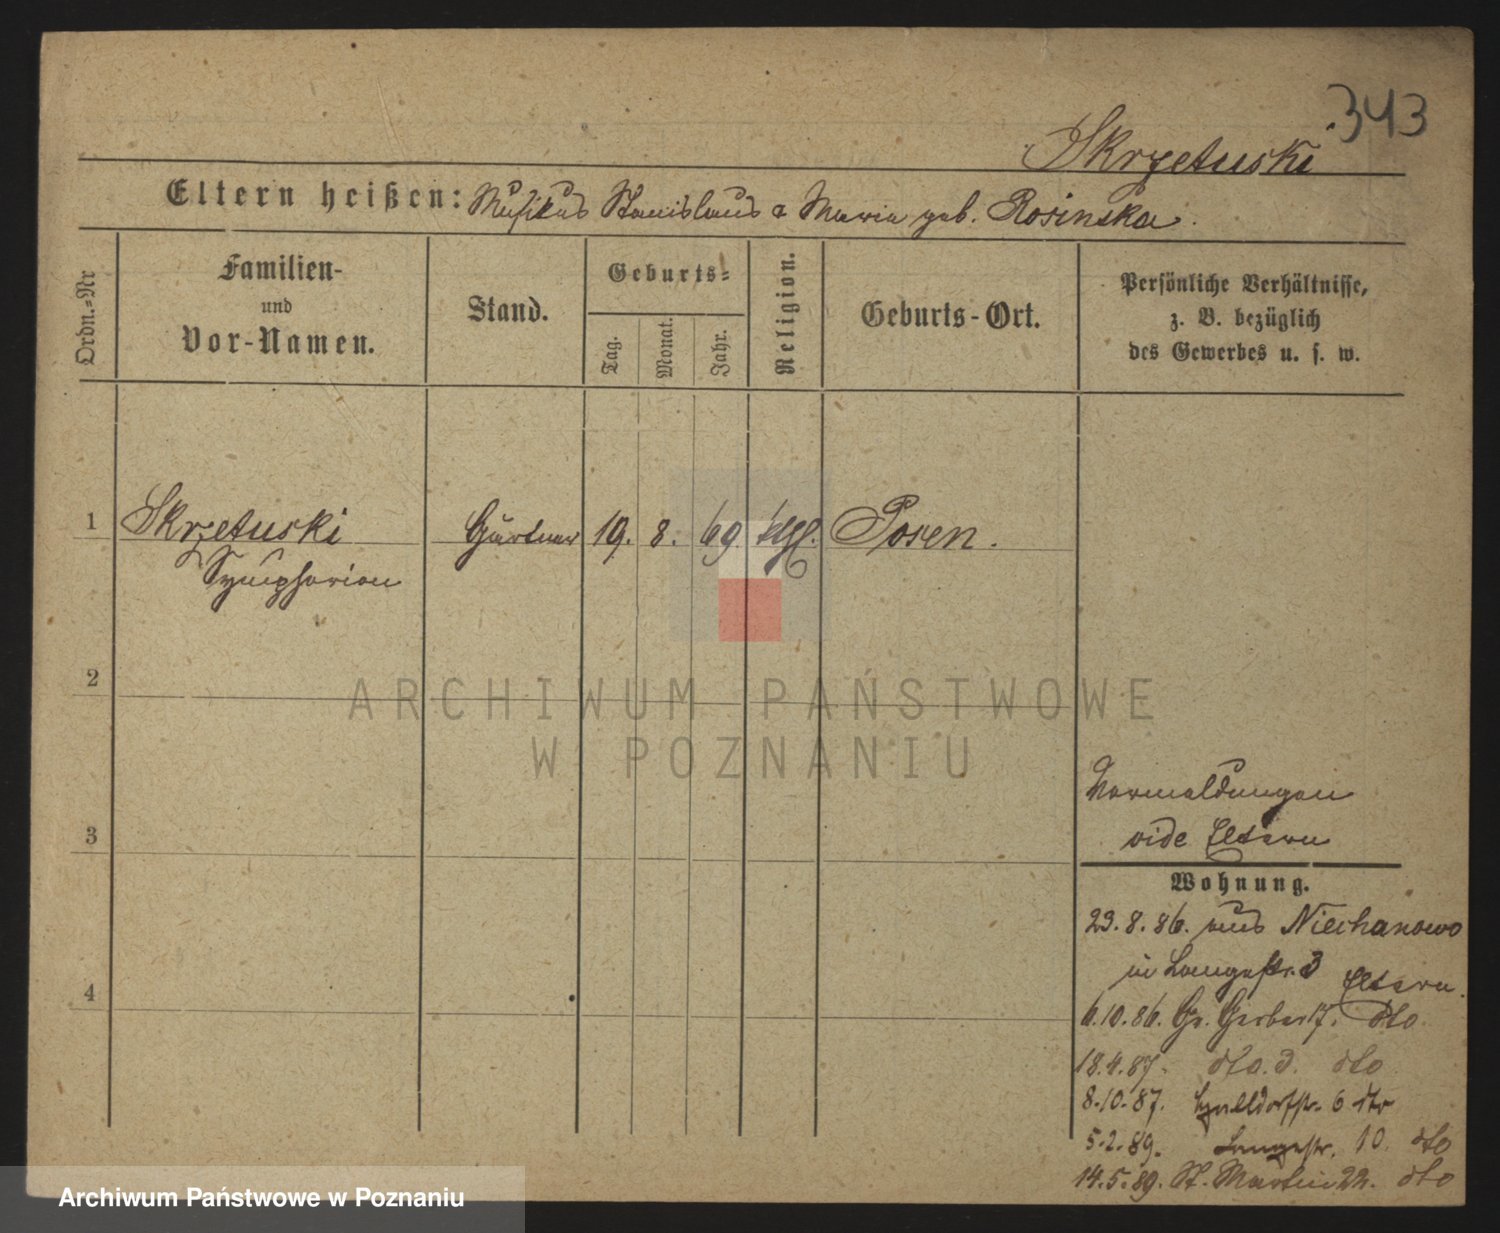 343
Skrzetuski
Eltern heißen: Musikus Stanislaus & Maria geb. Rosinska.
Ordn.-Nr
Familien-
und
Vor-Namen.
Stand.
Geburts-
Tag.
Monat.
Jahr.
Religion.
Geburts-Ort.
Persönliche Verhältnisse,
z. B. bezüglich
des Gewerbes u. s. w.
1 Skrzetuski Gärtner 19. 8. 69. ktgl. Posen.
Symphorian
2
ARCHIWUM PAŃSTWOWE
W POZNANIU
Vermeldungen
3 vide Eltern
Wohnung.
23.8.86. aus Niechanowo
in Langestr. 3 Eltern.
4
6.10.86. Gr. Gerber 17. dto
18.4.87. dto. d. dto
8.10.87. 6 dto
5.2.89. Langestr. 10 dto
14.5.89. St. Martin 22. dto
Archiwum Państwowe w Poznaniu